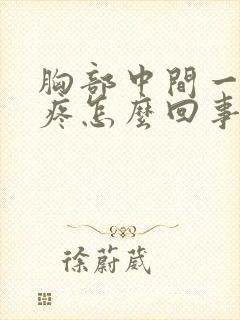 胸部中間一
疼怎麼回事
徐蔚葳